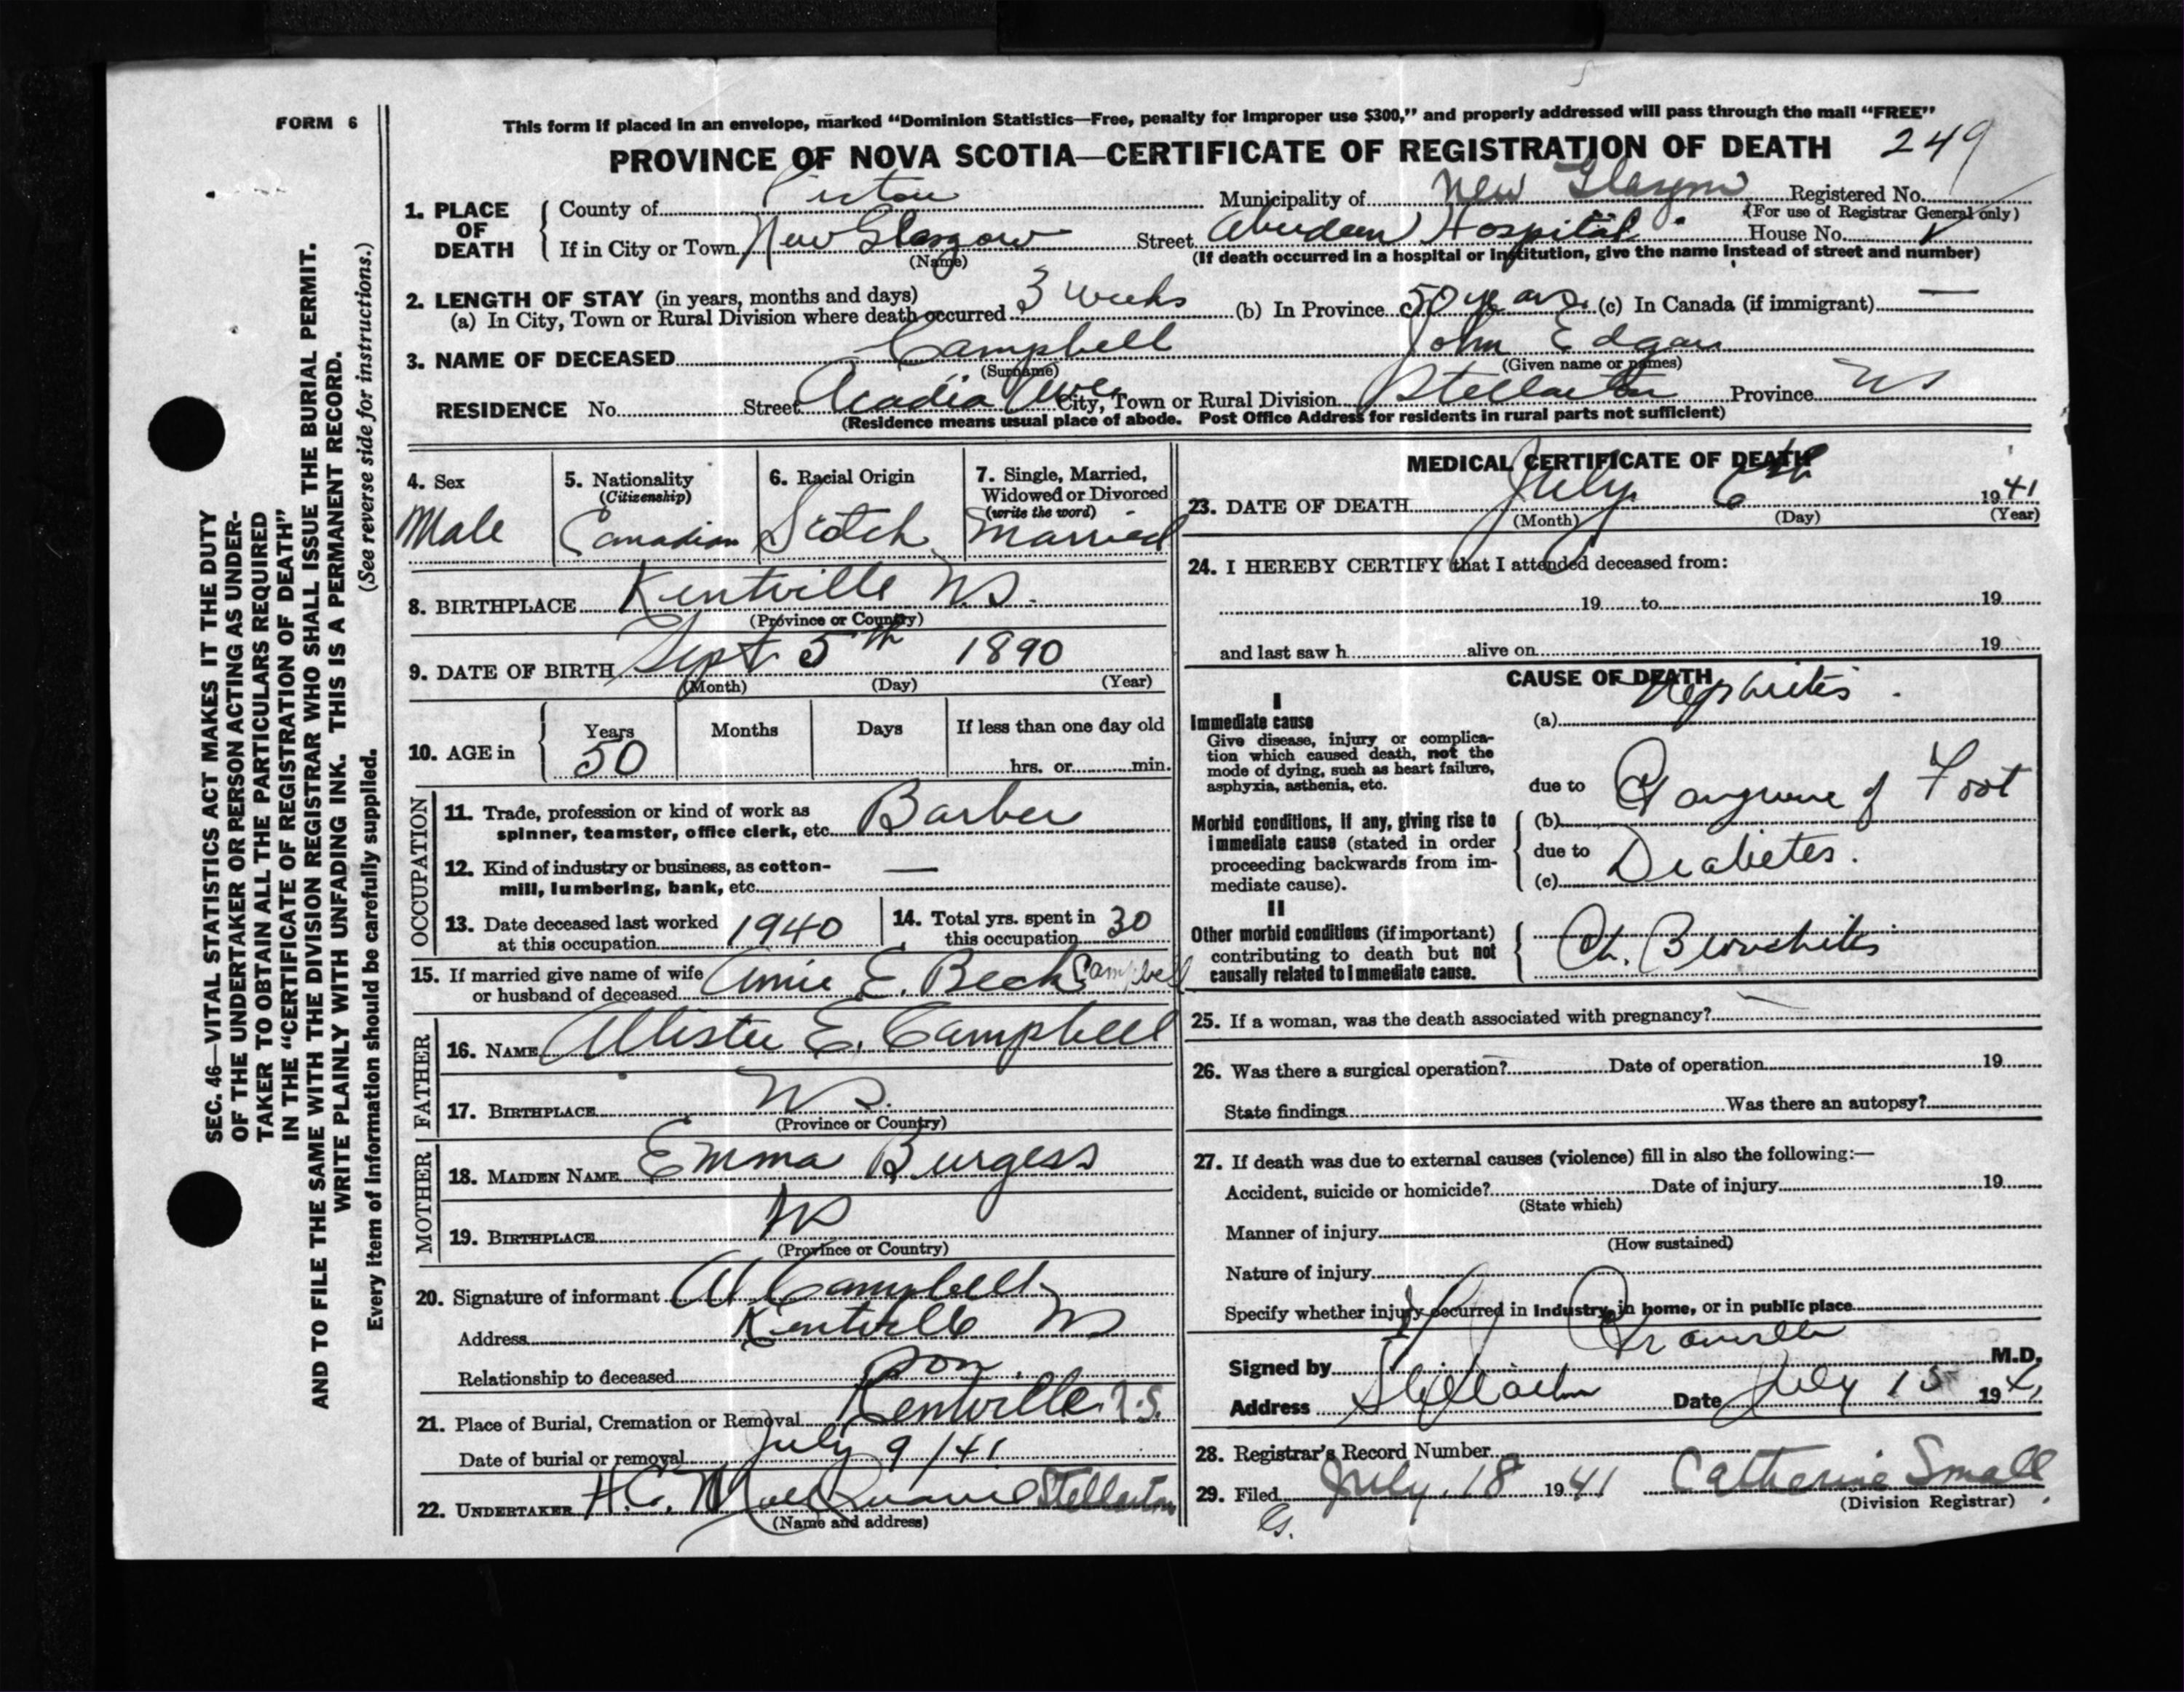 FORM 6
This form if placed in an envelope, marked "Dominion Statistics—Free, penalty for improper use $300," and properly addressed will pass through the mail "FREE"
PROVINCE OF NOVA SCOTIA—CERTIFICATE OF REGISTRATION OF DEATH 249
1. PLACE OF DEATH
County of Pictou Municipality of New Glasgow Registered No.
(For use of Registrar General only)
If in City or Town New Glasgow Street Aberdeen Hospital House No.
(Name) (If death occurred in a hospital or institution, give the name instead of street and number)
2. LENGTH OF STAY (in years, months and days)
(a) In City, Town or Rural Division where death occurred 3 weeks (b) In Province 50 years (c) In Canada (if immigrant) —
3. NAME OF DECEASED Campbell John Edgar
(Surname) (Given name or names)
RESIDENCE No. Street Acadia Ave City, Town or Rural Division Stellarton Province NS
(Residence means usual place of abode. Post Office Address for residents in rural parts not sufficient)
4. Sex
Male
5. Nationality
(Citizenship)
Canadian
6. Racial Origin
Scotch
7. Single, Married,
Widowed or Divorced
(write the word)
Married
8. BIRTHPLACE Kentville N.S.
(Province or Country)
9. DATE OF BIRTH Sept 5th 1890
(Month) (Day) (Year)
10. AGE in
Years Months Days If less than one day old
50 hrs. or min.
OCCUPATION
11. Trade, profession or kind of work as
spinner, teamster, office clerk, etc. Barber
12. Kind of industry or business, as cotton-
mill, lumbering, bank, etc. —
13. Date deceased last worked
at this occupation 1940
14. Total yrs. spent in
this occupation 30
15. If married give name of wife
or husband of deceased Annie E. Beck Campbell
FATHER
16. NAME Allister E. Campbell
17. BIRTHPLACE N.S.
(Province or Country)
MOTHER
18. MAIDEN NAME Emma Burgess
19. BIRTHPLACE NS
(Province or Country)
20. Signature of informant A Campbell
Address Kentville NS
Relationship to deceased Son.
21. Place of Burial, Cremation or Removal Kentville N.S.
Date of burial or removal July 9/41
22. UNDERTAKER H.C. Stellarton
(Name and address)
MEDICAL CERTIFICATE OF DEATH
23. DATE OF DEATH July 6th 1941
(Month) (Day) (Year)
24. I HEREBY CERTIFY that I attended deceased from:
19 to 19
and last saw h alive on 19
CAUSE OF DEATH
I
Immediate cause
Give disease, injury or complica-
tion which caused death, not the
mode of dying, such as heart failure,
asphyxia, asthenia, etc.
(a) Nephritis.
due to
Morbid conditions, if any, giving rise to
immediate cause (stated in order
proceeding backwards from im-
mediate cause).
(b) Gangrene of Foot
due to
(c) Diabetes.
II
Other morbid conditions (if important)
contributing to death but not
causally related to immediate cause.
Ch. Bronchitis
25. If a woman, was the death associated with pregnancy?
26. Was there a surgical operation? Date of operation 19
State findings Was there an autopsy?
27. If death was due to external causes (violence) fill in also the following:—
Accident, suicide or homicide? Date of injury 19
(State which)
Manner of injury
(How sustained)
Nature of injury
Specify whether injury occurred in industry, in home, or in public place
Signed by M.D.
Address Stellarton Date July 15 1941
28. Registrar's Record Number
29. Filed July 18 1941 Catherine Small
(Division Registrar)
G.
SEC. 46—VITAL STATISTICS ACT MAKES IT THE DUTY
OF THE UNDERTAKER OR PERSON ACTING AS UNDER-
TAKER TO OBTAIN ALL THE PARTICULARS REQUIRED
IN THE "CERTIFICATE OF REGISTRATION OF DEATH"
AND TO FILE THE SAME WITH THE DIVISION REGISTRAR WHO SHALL ISSUE THE BURIAL PERMIT.
WRITE PLAINLY WITH UNFADING INK. THIS IS A PERMANENT RECORD.
(See reverse side for instructions.)
Every item of information should be carefully supplied.